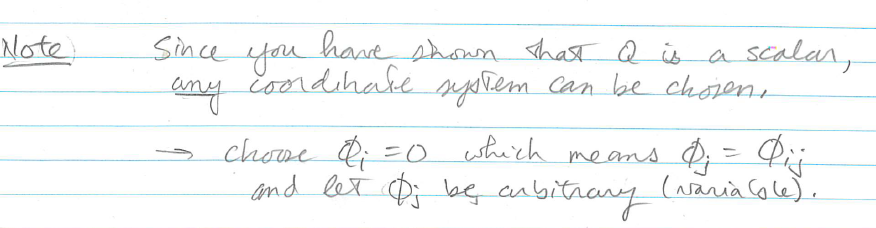 Note Since you have shown that Q is a scalar,
any coordinate system can be chosen.
→ choose Φi = 0 which means Φj = Φij
and let Φj be arbitrary (variable).